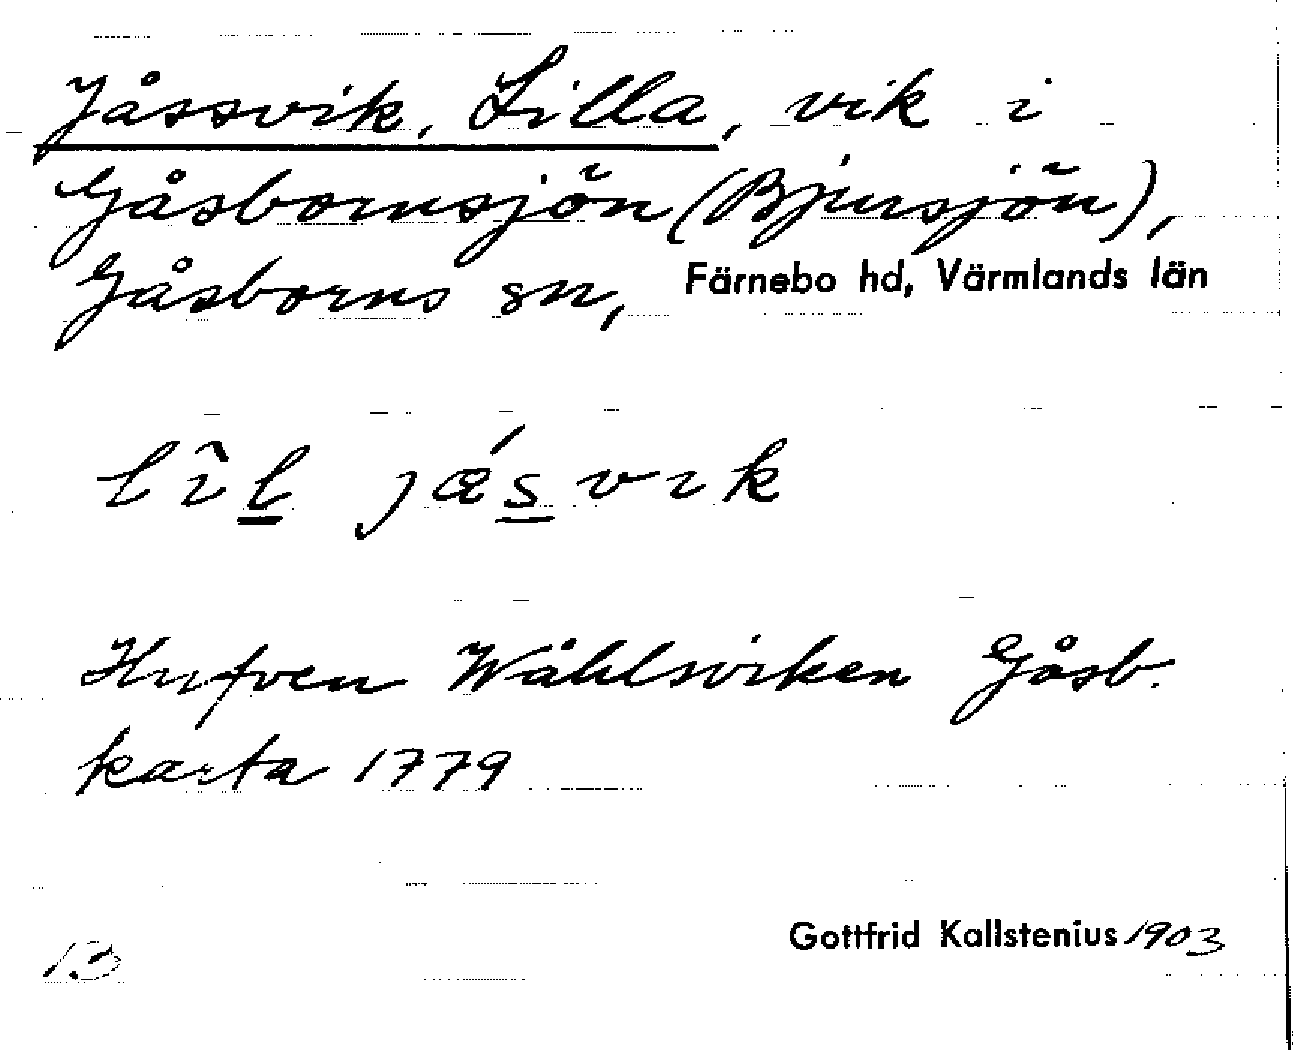 Jåssvik, Lilla, vik i
Gåsbornssjön (Bjursjön),
Gåsborns sn, Färnebo hd, Värmlands län
lìl jǽsvik
Wåhlsviken Gåsb.
karta 1779
Gottfrid Kallstenius 1903
13